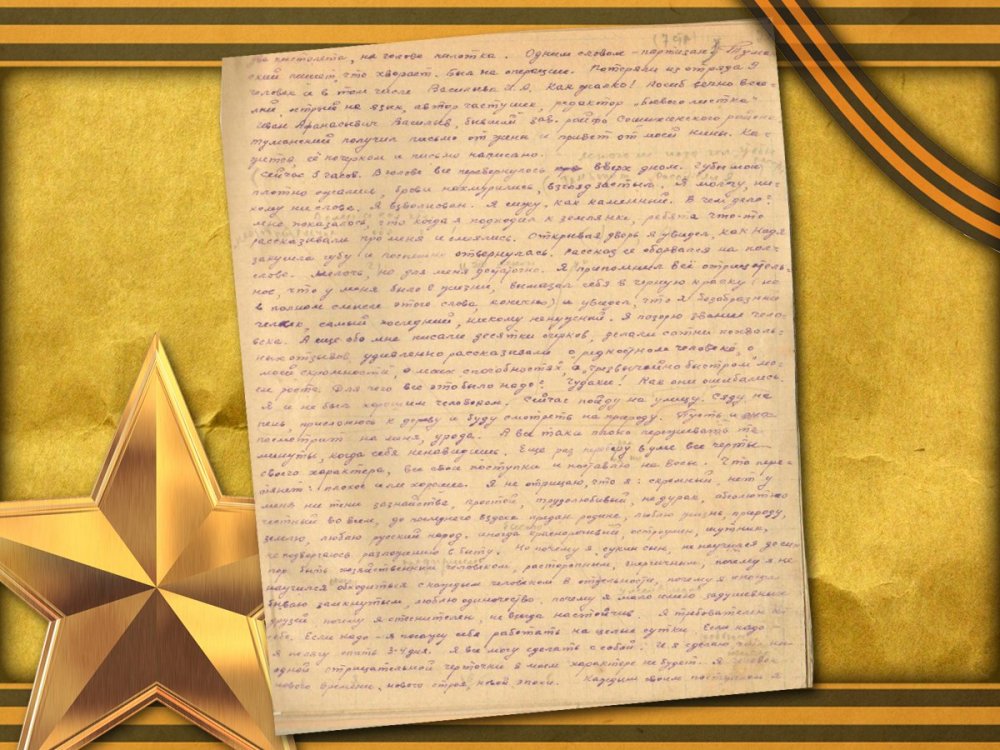 (7 стр)
на голове пилотка. Одним словом - партизан!
ский пишет, что хворает. Был на операции. Потеряли из отряда 9
человек и в том числе Васильева И.А. Как жалко! Погиб вечно весе-
лый, острый на язык, автор частушек, редактор "Боевого листка"
Иван Афанасьевич Васильев, бывший зав. райфо Сошихенского района.
Туманский получил письмо от жены и привет от моей Нины. Ка-
жется, её почерком и письмо написано.
Сейчас 5 часов. В голове все перевернулось вверх дном. Губы мои
плотно сжались, брови нахмурились, взгляд застыл. Я молчу, ни-
кому ни слова. Я взволнован. Я сижу, как каменный. В чем дело?
Мне показалось, что когда я подходил к землянке, ребята что-то
рассказывали про меня и смеялись. Открывая дверь я увидел, как Надя
закусила губу и поспешно отвернулась. Рассказ её оборвался на полу-
слове. Мелочь, но для меня достаточно. Я припомнил всё отрицатель-
ное, что у меня было в жизни, вымазал себя в черную краску (не
в полном смысле этого слова конечно) и увидел, что я безобразный
человек, самый последний, никому ненужный. Я позорю звание чело-
века. А еще обо мне писали десятки очерков, делали сотни похваль-
ных отзывов, удивленно рассказывали о редкостном человеке, о
моей скромности, о моих способностях, о чрезвычайно быстром мо-
ем росте. Для чего всё это было надо? Чудаки! Как они ошибались.
Я и не был хорошим человеком. Сейчас пойду на улицу. Сяду на
пень, прислонюсь к дереву и буду смотреть на природу. Пусть и она
посмотрит на меня, урода. А всё таки плохо переживать те
минуты, когда себя ненавидишь. Еще раз переберу в уме все черты
своего характера, все свои поступки и поставлю на весы. Что пере-
тянет: плохое или хорошее. Я не отрицаю, что я: скромный, нет у
меня ни тени зазнайства, простой, трудолюбивый, не дурак, абсолютно
честный во всем, до последнего вздоха предан родине, люблю жизнь, природу,
землю, люблю русский народ. Иногда красноречивый, остроумен, шутник,
не подвергаюсь разложению в быту. Но почему я, сукин сын, не научился до сих
пор быть хозяйственным человеком, расторопным, энергичным, почему я не
научился обходиться с каждым человеком в отдельности, почему я иногда
бываю замкнутым, люблю одиночество. почему я мало имею задушевных
друзей почему я стеснителен, не всегда настойчив. Я требователен к
себе. Если надо - я посажу себя работать на целые сутки. Если надо -
я не лягу спать 3-4 дня. Я всё могу сделать с собой. И я сделаю так, ни
одной отрицательной черточки в моем характере не будет. Я человек
нового времени, нового строя, новой эпохи. Каждым своим поступком я